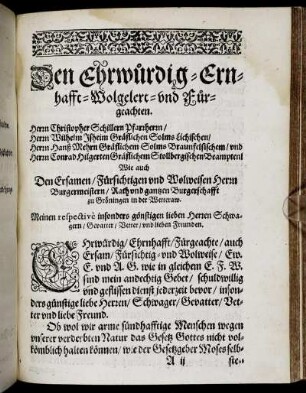 Den Ehrwürdig-Ern-
hafft-Wolgelert-vnd Für-
geachten.
Herrn Christopher Schillern Pfarrherrn/
Herrn Wilhelm Jsheim Gräflichen Solms Lichischen/
Herrn Hanß Mehrn Gräflichem Solms Braunfelsischem/ vnd
Herrn Conrad Hilgerten Gräflichem Stollbergischen Beampten
Wie auch
Den Ersamen/ Fürsichtigen vnd Wolweisen Herrn
Burgermeistern/ Rath vnd gantzen Burgerschafft
zu Gröningen in der Wetteraw.
Meinen respectivè insonders günstigen lieben Herren Schwa-
gern/ Gevatter/ Vetter/ vnd lieben Freunden.
Ehrwürdig/ Ehrnhafft/ Fürgeachte/ auch
Ersam/ Fürsichtig-vnd Wolweise/ Ew.
E. vnd A. G. wie in gleichem E. F. W.
sind mein andechtig Gebet/ schuldwillig
vnd geflissen dienst jederzeit bevor/ inson-
ders günstige liebe Herren/ Schwager/ Gevatter/ Vet-
ter vnd liebe Freund.
Ob wol wir arme sündhafftige Menschen wegen
vnserer verderbten Natur das Gesetz Gottes nicht vol-
kömblich halten können/ wie der Gesetzgeber Moses selb-
A ij
ste-